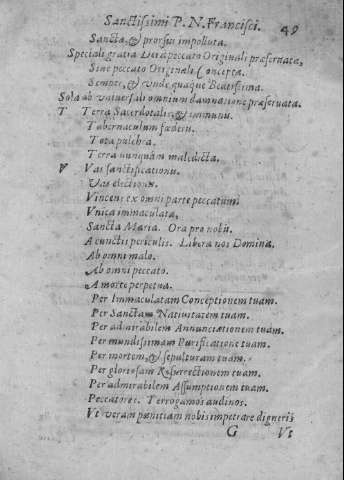 Sanctissimi P. N. Francisci. 49
Sancta, & prorsus impolluta.
Speciali gratia Dei a peccato Originali præseruata,
Sine peccato Originali Concepta.
Semper, & vnde quaque Beatissima.
Sola ab vniuersali omnium damnatione præseruata.
T Terra Sacerdotalis, & immunis
Tabernaculum fæderis
Tota pulchra.
Terra nunquàm maledicta.
V Vas sanctificationis.
Vas electionis.
Vincens ex omni parte peccatum.
Vnica immaculata,
Sancta Maria. Ora pro nobis.
A cunctis periculis. Libera nos Domina.
Ab omni malo.
Ab omni peccato.
A morte perpetua.
Per Immaculatam Conceptionem tuam.
Per Sanctam Natiuitatem tuam.
Per admirabilem Annunciationem tuam.
Per mundissimam Purificatione tuam.
Per mortem, & sepulturam tuam.
Per gloriosam Resurrectionem tuam.
Per admirabilem Assumptionem tuam.
Peccatores. Te rogamos audi nos.
Vt veram pœnitiam nobis impetrare digneris
G Vt